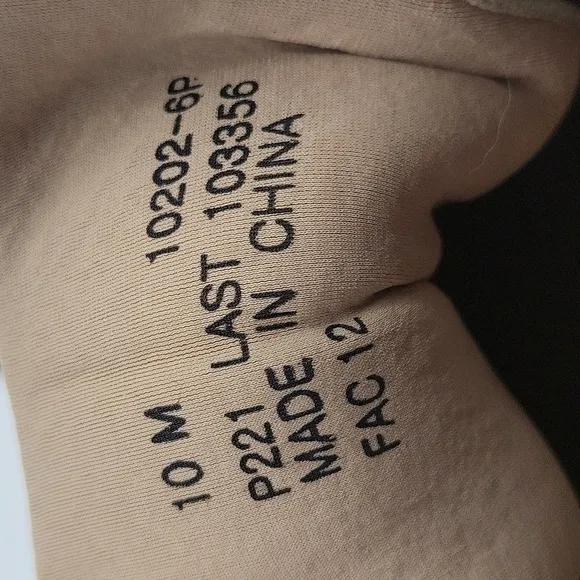 10 M 10202-6P
P221 LAST 103356
MADE IN CHINA
FAC 12